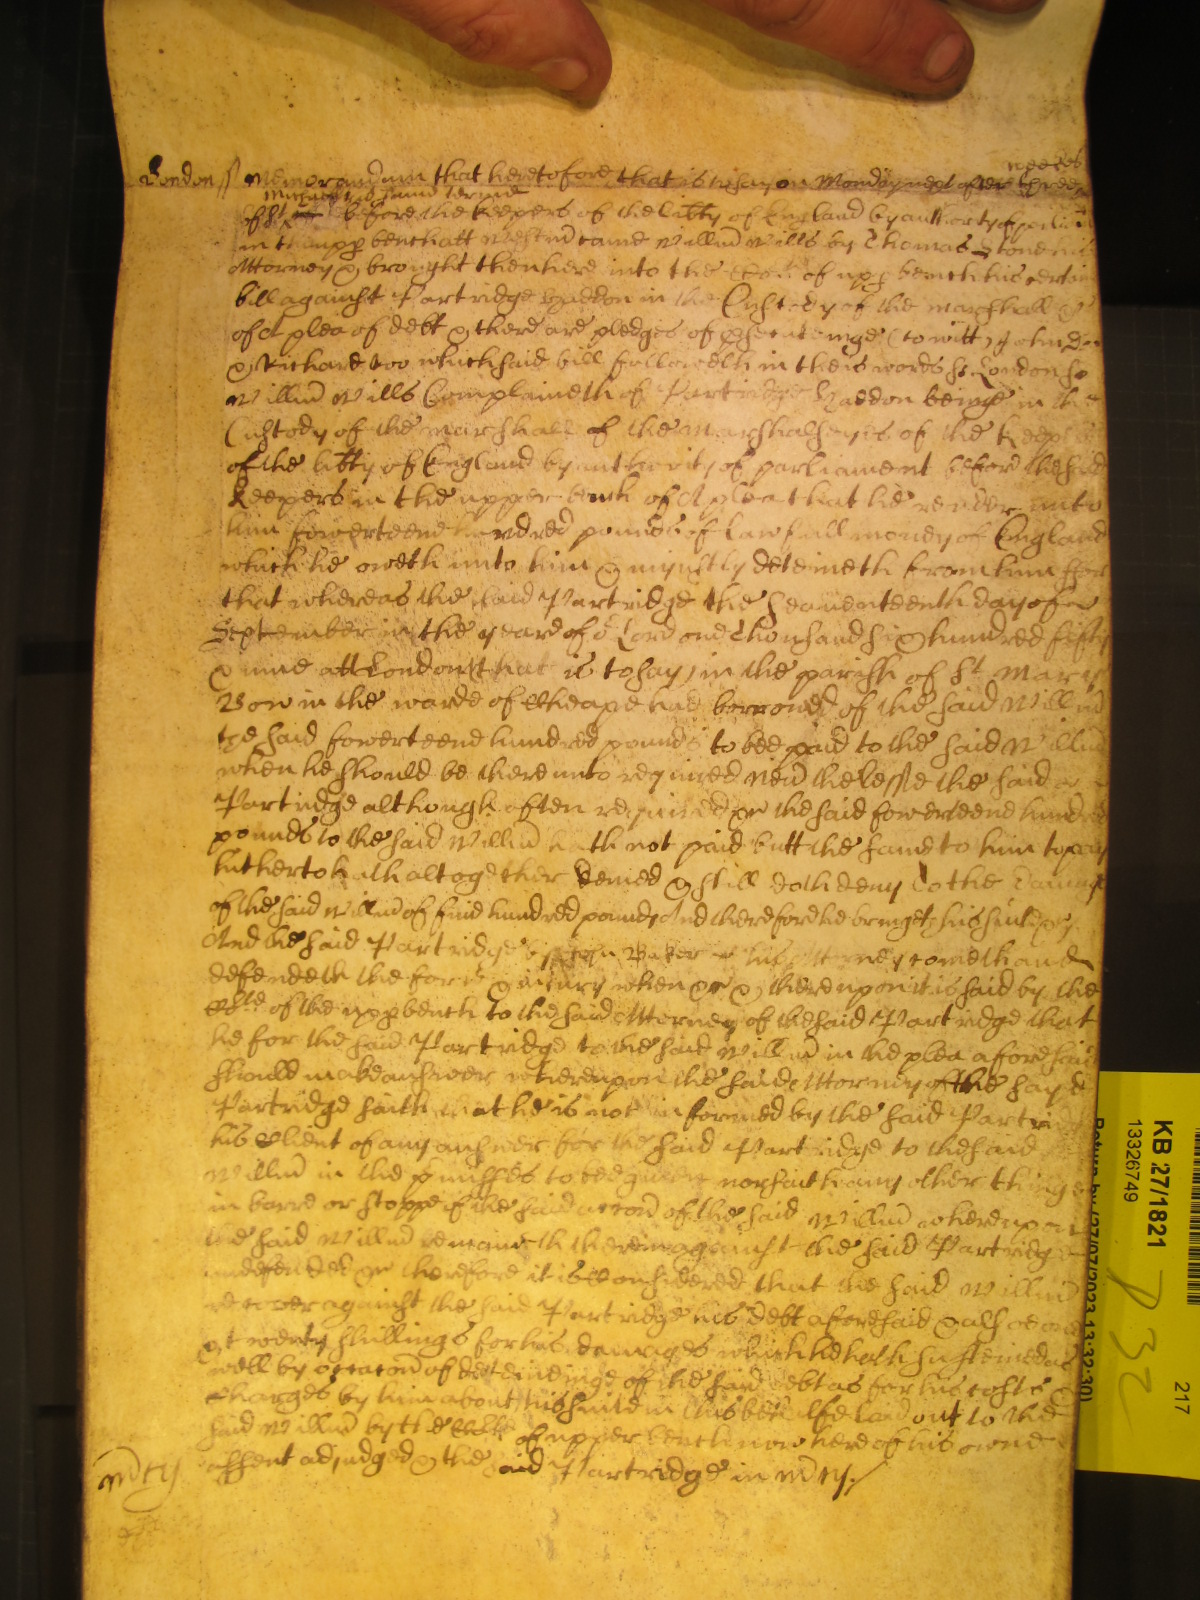 London ss Memorandum that heretofore that is to say on Monday next after three weekes
of St Michaell this same terme before the Keepers of the libty of England by authority of parliam
in the upp bench att Westm came Willm Wills by Thomas Stone his
Attorney & brought then here into the Cort of upp bench his certain
bill against Partridge Haddon in the Custody of the marshall &c
of A plea of debt & there are pledges of prosecutinge (to witt) John Doe
& Richard roo which said bill followeth in theis words ss London ss
Willm Wills Complaineth of Partridge Haddon beinge in the
Custody of the marshall of the marshalseyes of the Keepers
of the libty of England by authority of parliament before the said
Keepers in the upper bench of A plea that he render unto
him fowerteene hundred pounds of lawfull money of England
which he oweth unto him & uniustly deteineth from him ffor
that whereas the said Partridge the seaventeenth day of
September in the yeare of or Lord one thousand six hundred fifty
& nine att London (that is to say) in the parish of St Mary
Bow in the warde of Cheape had borrowed of the said Willm
the said fowerteene hundred pounds to bee paid to the said Willm
when he should be thereunto required Nevthelesse the said
Partridge although often required &c the said fowerteene hundred
pounds to the said Willm hath not paid butt the same to him to pay
hitherto hath altogether denied & still doth deny to the damage
of the said Willm of five hundred pounds And therefore he bringeth his suite &c
And the said Partridge by John Baker his Attorney cometh and
defendeth the force & iniury when &c & thereupon it is said by the
Corte of the upp bench to the said Attorney of the said Partridge that
he for the said Partridge to the said Willm in the plea aforesaid
should make answeer whereupon the said Attorney of the sayd
Partridge saith that he is not informed by the said Partridge
his Client of any answeer for the said Partridge to the said
Willm in the pmisses to bee given nor saith any other thinge
in barre or stoppe of the said accon of the said Willm whereupon
the said Willm remaineth therein against the said Partridge
undefended &c therefore it is considered that the said Willm
recover against the said Partridge his debt aforesaid & alsoe one
& twenty shillings for his damages which he hath susteined as
well by occacon of deteindinge of the said debt as for his costs &
Charges by him about his suite in this behalfe laid out to the
said Willm by the Corte of upper bench now here of his owne
assent adiudged & the said Partridge in mcy /
mcy
KB 27/1821
13326749
217
P 32
Return by (27/07/2023 13:32:30)